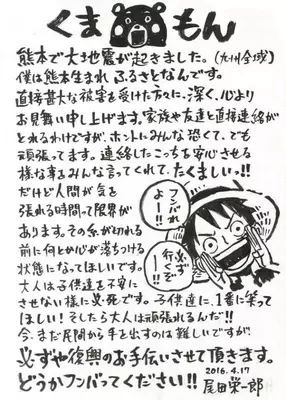 くまモン
熊本で大きな地震が起きました。(九州全域)
僕は熊本生まれ ふるさとなんです。
直接甚大な被害を受けた方々に、深く、心より
お見舞い申し上げます。家族や友達と直接連絡が
とれるわけですが、ホントにみんな恐くて、でも
頑張ってます。連絡したこっちを安心させる
様な事をみんな言ってくれて、たくましいっ!!
だけど人間が気を
張れる時間って限界が
あります。その糸が切れる
前に何とか心が落ちつける
状態になってほしいです。
大人は子供達を不安に
させない様に必死です。子供達に、1番に笑って
ほしい!そしたら大人は頑張れるんだ!!
今、まだ民間から手を出すのは難しいですが
必ずや復興のお手伝いさせて頂きます。
どうかフンバってください!!
フンバれよー!!
必ず行くぞー!!
2016.4.17
尾田栄一郎